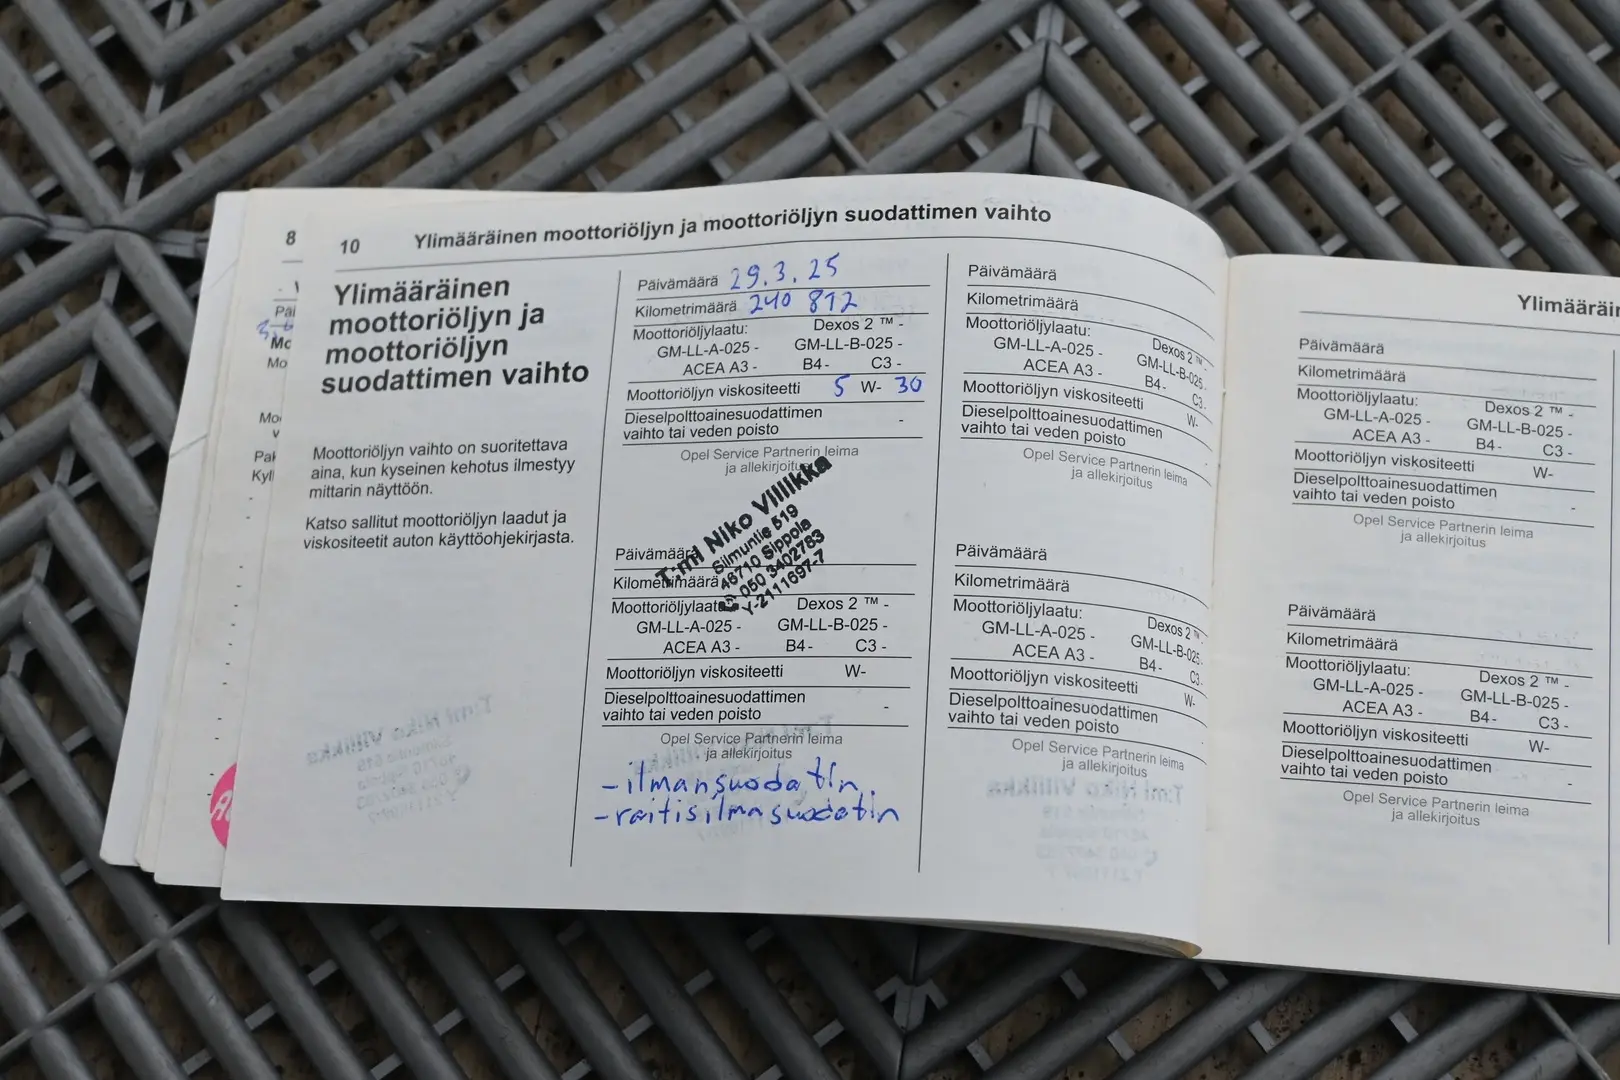 8
10
Ylimääräinen moottoriöljyn ja moottoriöljyn suodattimen vaihto
Ylimääräinen
moottoriöljyn ja
moottoriöljyn
suodattimen vaihto
Moottoriöljyn vaihto on suoritettava
aina, kun kyseinen kehotus ilmestyy
mittarin näyttöön.
Katso sallitut moottoriöljyn laadut ja
viskositeetit auton käyttöohjekirjasta.
Päivämäärä 29.3.25
Kilometrimäärä 240 812
Moottoriöljylaatu: Dexos 2 ™ -
GM-LL-A-025 - GM-LL-B-025 -
ACEA A3 - B4- C3 -
Moottoriöljyn viskositeetti 5 W- 30
Dieselpolttoainesuodattimen
vaihto tai veden poisto -
Opel Service Partnerin leima
ja allekirjoitus
T:mi Niko Villikka
Silmuntie 519
46710 Sippola
050 3402783
Y-2111697-7
Päivämäärä
Kilometrimäärä
Moottoriöljylaatu: Dexos 2 ™ -
GM-LL-A-025 - GM-LL-B-025 -
ACEA A3 - B4- C3 -
Moottoriöljyn viskositeetti W-
Dieselpolttoainesuodattimen
vaihto tai veden poisto -
Opel Service Partnerin leima
ja allekirjoitus
- ilmansuodatin
- raitisilmansuodatin
Päivämäärä
Kilometrimäärä
Moottoriöljylaatu: Dexos 2 ™ -
GM-LL-A-025 - GM-LL-B-025-
ACEA A3 - B4- C3-
Moottoriöljyn viskositeetti W-
Dieselpolttoainesuodattimen
vaihto tai veden poisto
Opel Service Partnerin leima
ja allekirjoitus
Päivämäärä
Kilometrimäärä
Moottoriöljylaatu: Dexos 2 ™ -
GM-LL-A-025 - GM-LL-B-025-
ACEA A3 - B4- C3-
Moottoriöljyn viskositeetti W-
Dieselpolttoainesuodattimen
vaihto tai veden poisto
Opel Service Partnerin leima
ja allekirjoitus
Päivämäärä
Kilometrimäärä
Moottoriöljylaatu: Dexos 2 ™ -
GM-LL-A-025 - GM-LL-B-025 -
ACEA A3 - B4- C3 -
Moottoriöljyn viskositeetti W-
Dieselpolttoainesuodattimen
vaihto tai veden poisto -
Opel Service Partnerin leima
ja allekirjoitus
Päivämäärä
Kilometrimäärä
Moottoriöljylaatu: Dexos 2 ™ -
GM-LL-A-025 - GM-LL-B-025 -
ACEA A3 - B4- C3 -
Moottoriöljyn viskositeetti W-
Dieselpolttoainesuodattimen
vaihto tai veden poisto -
Opel Service Partnerin leima
ja allekirjoitus